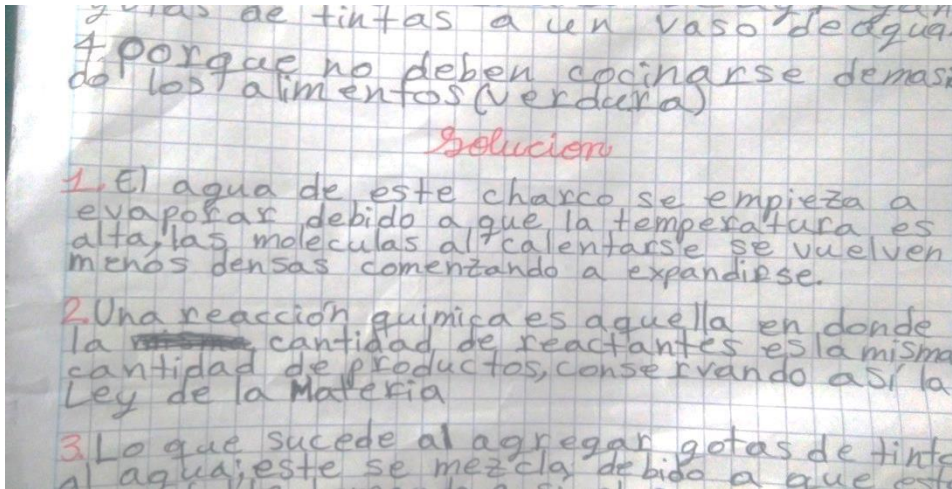 gotas de tintas a un vaso de agua
4 porque no deben cocinarse demas
do los alimentos (verdura)
Solucion
1. El agua de este charco se empieza a
evaporar debido a que la temperatura es
alta, las moleculas al calentarse se vuelven
menos densas comenzando a expandirse.
2. Una reacción quimica es aquella en donde
la cantidad de reactantes es la misma
cantidad de productos, conservando así la
Ley de la Materia
3. Lo que sucede al agregar gotas de tinta
al agua; este se mezcla debido a que est